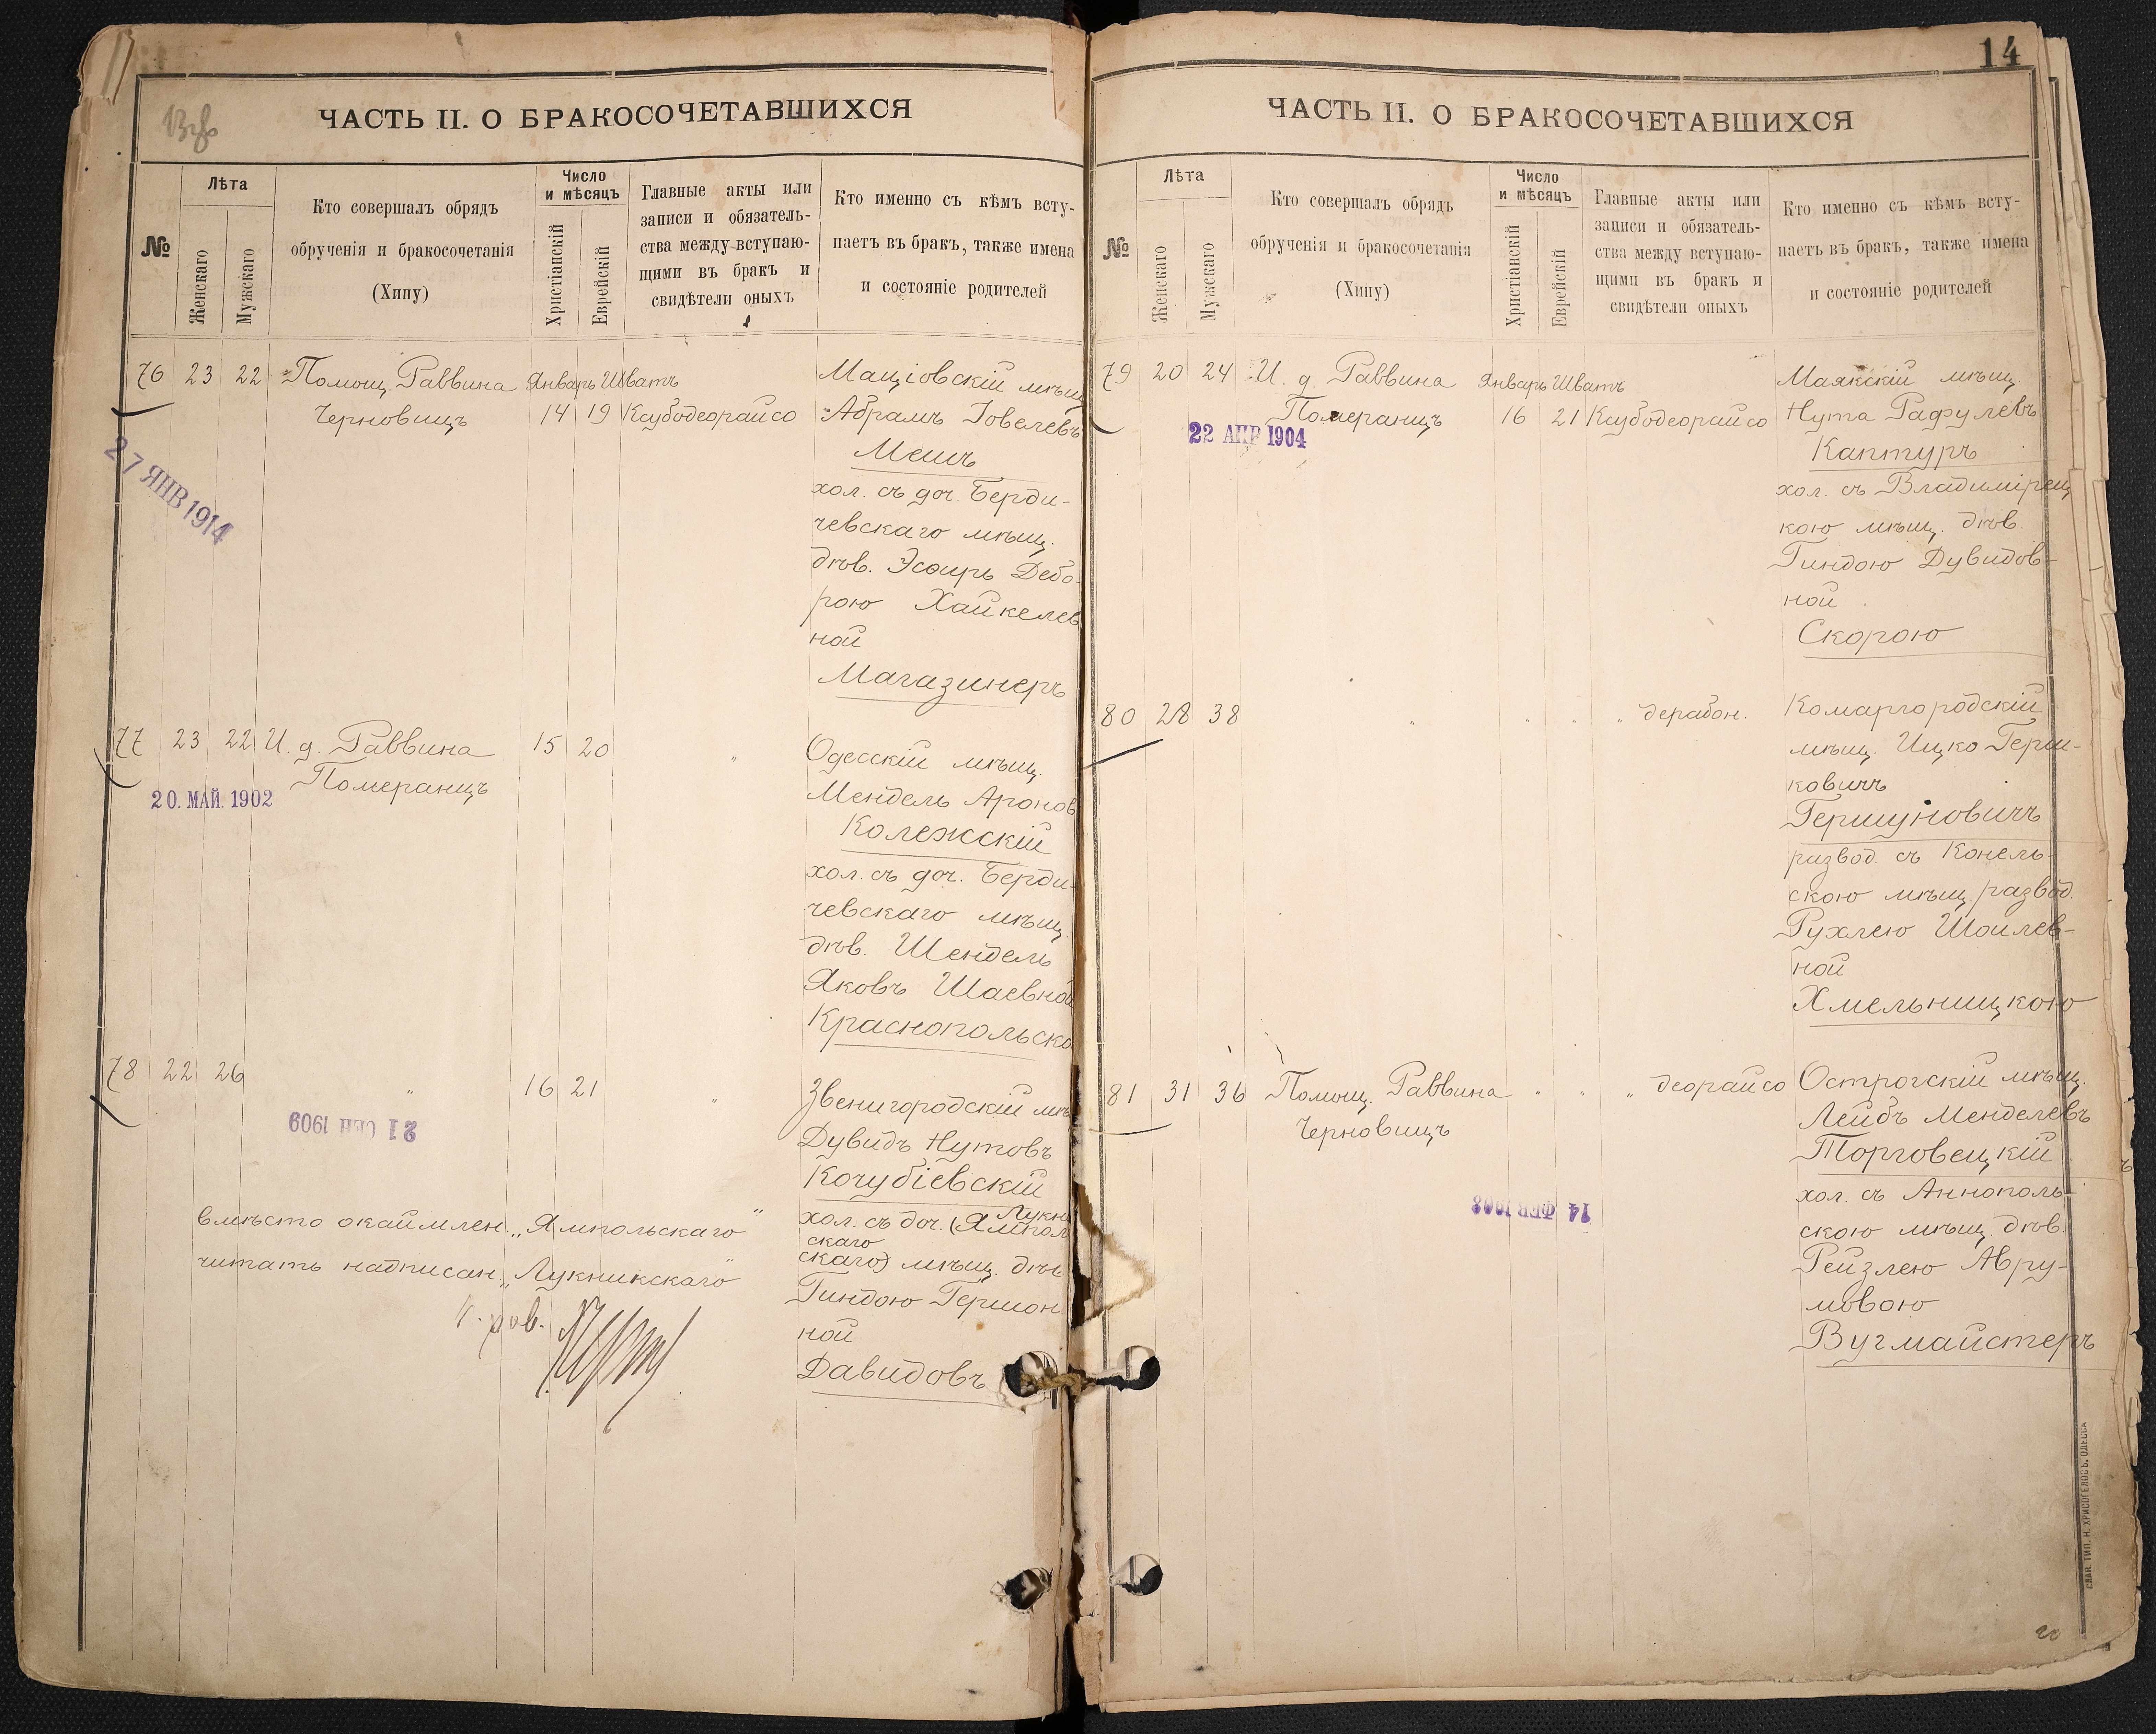 17
13 об
ЧАСТЬ II. О БРАКОСОЧЕТАВШИХСЯ
№
Лѣта
Женскаго
Мужскаго
Кто совершалъ обрядъ
обрученія и бракосочетанія
(Хипу)
Число
и мѣсяцъ
Христіанскій
Еврейскій
Главные акты или
записи и обязатель-
ства между вступаю-
щими въ бракъ и
свидѣтели оныхъ
Кто именно съ кѣмъ всту-
паетъ въ бракъ, также имена
и состояніе родителей
76 23 22 Помощ. Раввина Январь Шватъ
Черновицъ 14 19 Ксубодеорайсо
Маціовскій мѣщ.
Абрамъ Іовелевъ
Мешъ
хол. съ доч. Берди-
чевскаго мѣщ.
дѣв. Эсѳирь Дебо-
рою Хайкелев
ной
Магазинеръ
27 ЯНВ 1914
77 23 22 И. д. Раввина 15 20 „
Померанцъ
20. МАЙ. 1902
Одесскій мѣщ.
Мендель Аронов
Колежскій
хол. съ доч. Берди-
чевскаго мѣщ.
дѣв. Шендель
Яковъ Шаевной
Краснопольско
78 22 26 „ 16 21 „
21 СЕН 1909
Звенигородскій мѣ
Дувидъ Нутовъ
Кочубіевскій
Лукни
хол. съ доч. (Ямпол
скаго
скаго) мѣщ. дѣв
Гиндою Гершон
ной
Давидовъ
вмѣсто окаймлен. „Ямпольскаго"
читать надписан. „Лукникскаго"
ЧАСТЬ II. О БРАКОСОЧЕТАВШИХСЯ
14
№
Лѣта
Женскаго
Мужскаго
Кто совершалъ обрядъ
обрученія и бракосочетанія
(Хипу)
Число
и мѣсяцъ
Христіанскій
Еврейскій
Главные акты или
записи и обязатель-
ства между вступаю-
щими въ бракъ и
свидѣтели оныхъ
Кто именно съ кѣмъ всту-
паетъ въ бракъ, также имена
и состояніе родителей
79 20 24 И. д. Раввина Январь Шватъ
Померанцъ 16 21 Ксубодеорайсо
22 АПР 1904
Маякскій мѣщ.
Нута Рафулевъ
Каптуръ
хол. съ Владимірец
кою мѣщ. дѣв.
Гиндою Дувидов-
ной
Скорою
80 28 38 „ „ „ „ дерабон.
Комаргородскій
мѣщ. Ицко Герш-
ковичъ
Гершуновичъ
развод. съ Конель-
скою мѣщ. развод.
Рухлею Шоилев-
ной
Хмельницкою
81 31 36 Помощ. Раввина „ „ „ деорайсо
Черновицъ
14 ФЕВ 1908
Острогскій мѣщ.
Лейбъ Менделевъ
Торговецкій
хол. съ Аннополь-
скою мѣщ. дѣв.
Рейзлею Авру-
мовою
Вугмайстеръ
СЛАВ. ТИП. Н. ХРИСОГЕЛОСЪ, ОДЕССА